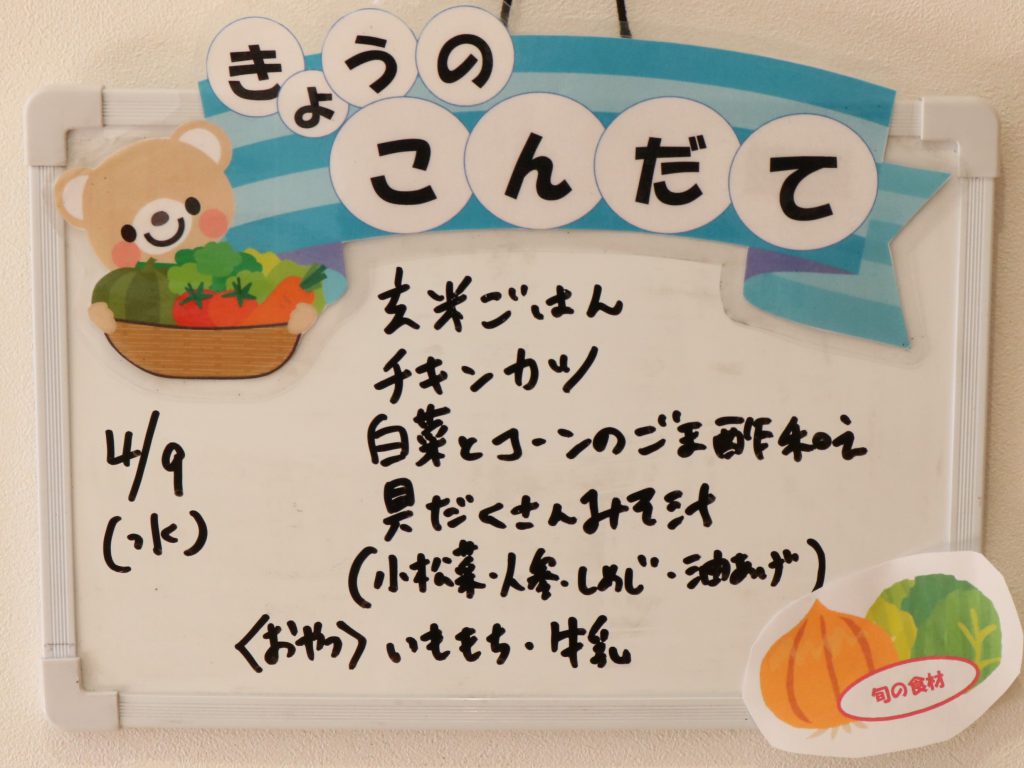 きょうの
こんだて
玄米ごはん
チキンカツ
白菜とコーンのごま酢和え
4/9
(水)
具だくさんみそ汁
(小松菜・人参・しめじ・油あげ)
〈おやつ〉いももち・牛乳
旬の食材